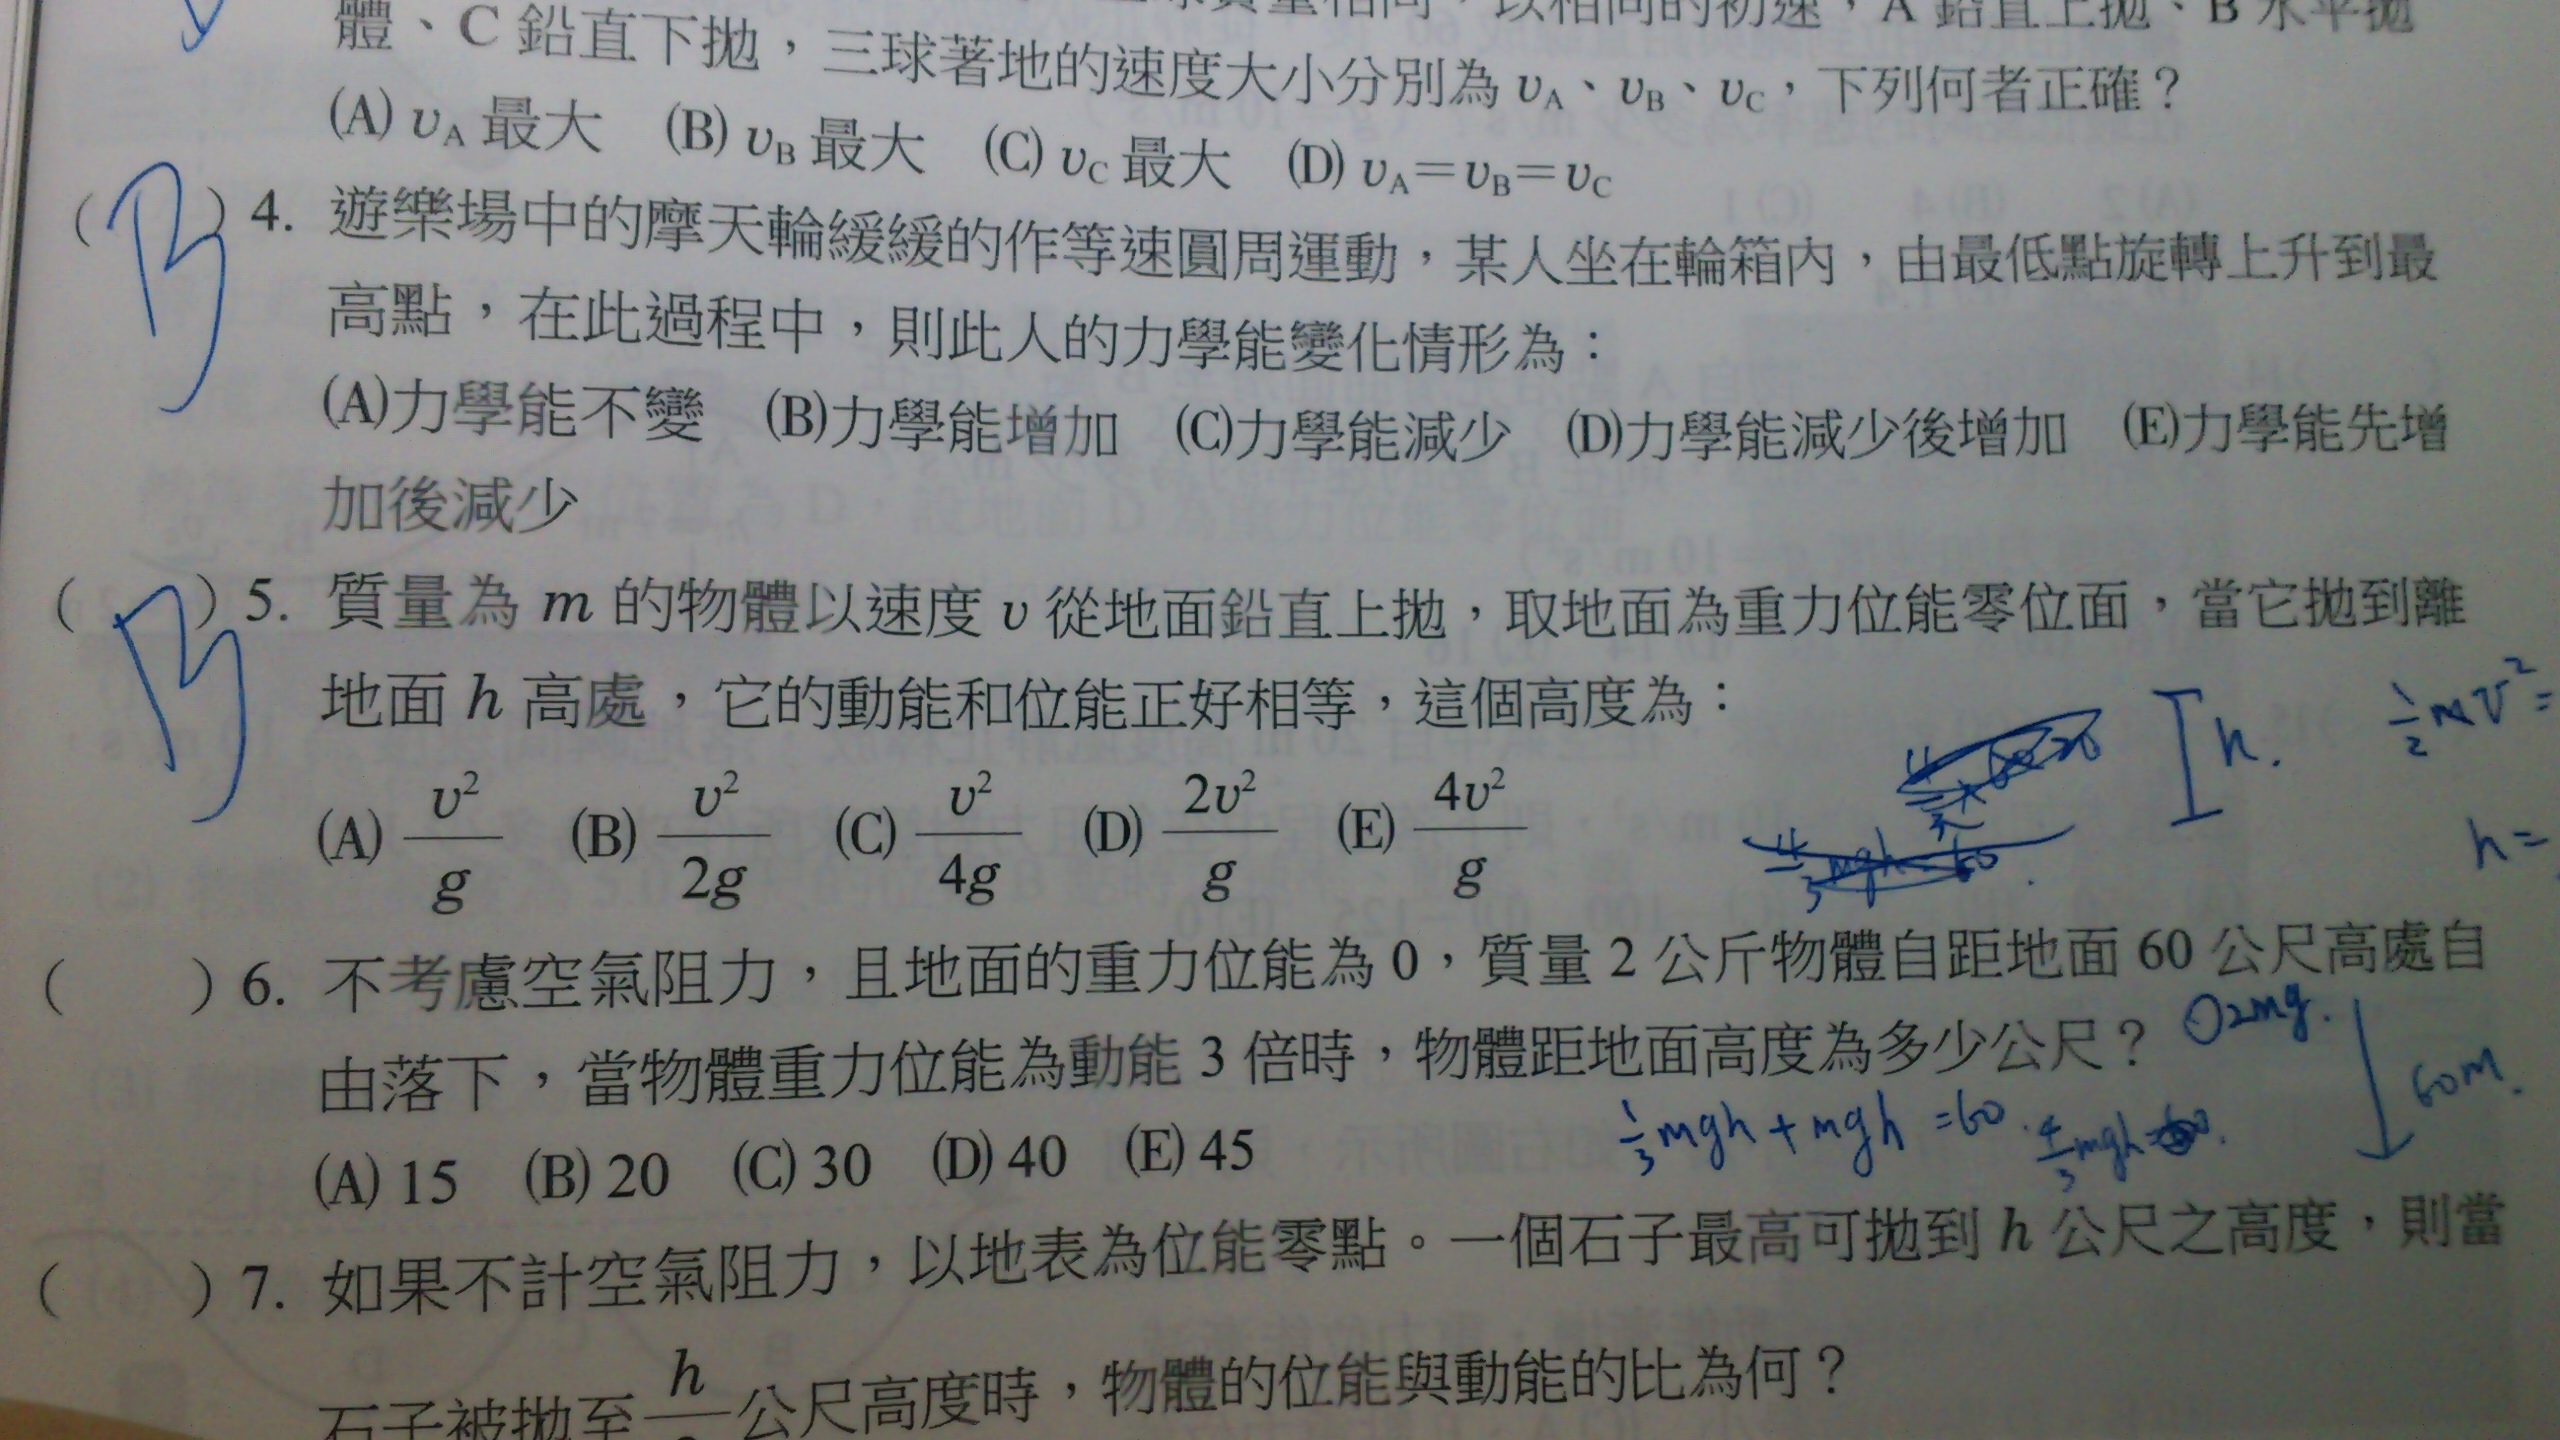 體、C 鉛直下拋，三球著地的速度大小分別為 vA、vB、vC，下列何者正確？
(A) vA 最大 (B) vB 最大 (C) vC 最大 (D) vA＝vB＝vC
( B ) 4. 遊樂場中的摩天輪緩緩的作等速圓周運動，某人坐在輪箱內，由最低點旋轉上升到最
高點，在此過程中，則此人的力學能變化情形為：
(A)力學能不變 (B)力學能增加 (C)力學能減少 (D)力學能減少後增加 (E)力學能先增
加後減少
( B ) 5. 質量為 m 的物體以速度 v 從地面鉛直上拋，取地面為重力位能零位面，當它拋到離
地面 h 高處，它的動能和位能正好相等，這個高度為：
h. ½mv²=
h=
(A) v²/g (B) v²/2g (C) v²/4g (D) 2v²/g (E) 4v²/g
( ) 6. 不考慮空氣阻力，且地面的重力位能為 0，質量 2 公斤物體自距地面 60 公尺高處自
由落下，當物體重力位能為動能 3 倍時，物體距地面高度為多少公尺？
60m.
⅓mgh + mgh = 60.
(A) 15 (B) 20 (C) 30 (D) 40 (E) 45
( ) 7. 如果不計空氣阻力，以地表為位能零點。一個石子最高可拋到 h 公尺之高度，則當
石子被拋至 h 公尺高度時，物體的位能與動能的比為何？